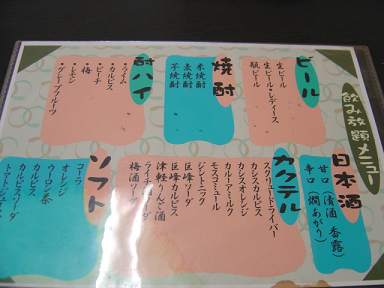 飲み放題メニュー
ビール
生ビール
生ビール・レディース
瓶ビール
焼酎
米焼酎
麦焼酎
芋焼酎
酎ハイ
・ライム
・カルピス
・ピーチ
・梅
・レモン
・グレープフルーツ
日本酒
甘口(清酒 香露)
辛口(燗あがり)
カクテル
スクリュードライバー
カシスカルピス
カシスオレンジ
カルーアミルク
ジントニック
モスコミュール
巨峰ソーダ
巨峰カルピス
津軽りんご酒
梅酒ソーダ
ソフト
コーラ
オレンジ
ウーロン茶
カルピス
カルピスソーダ